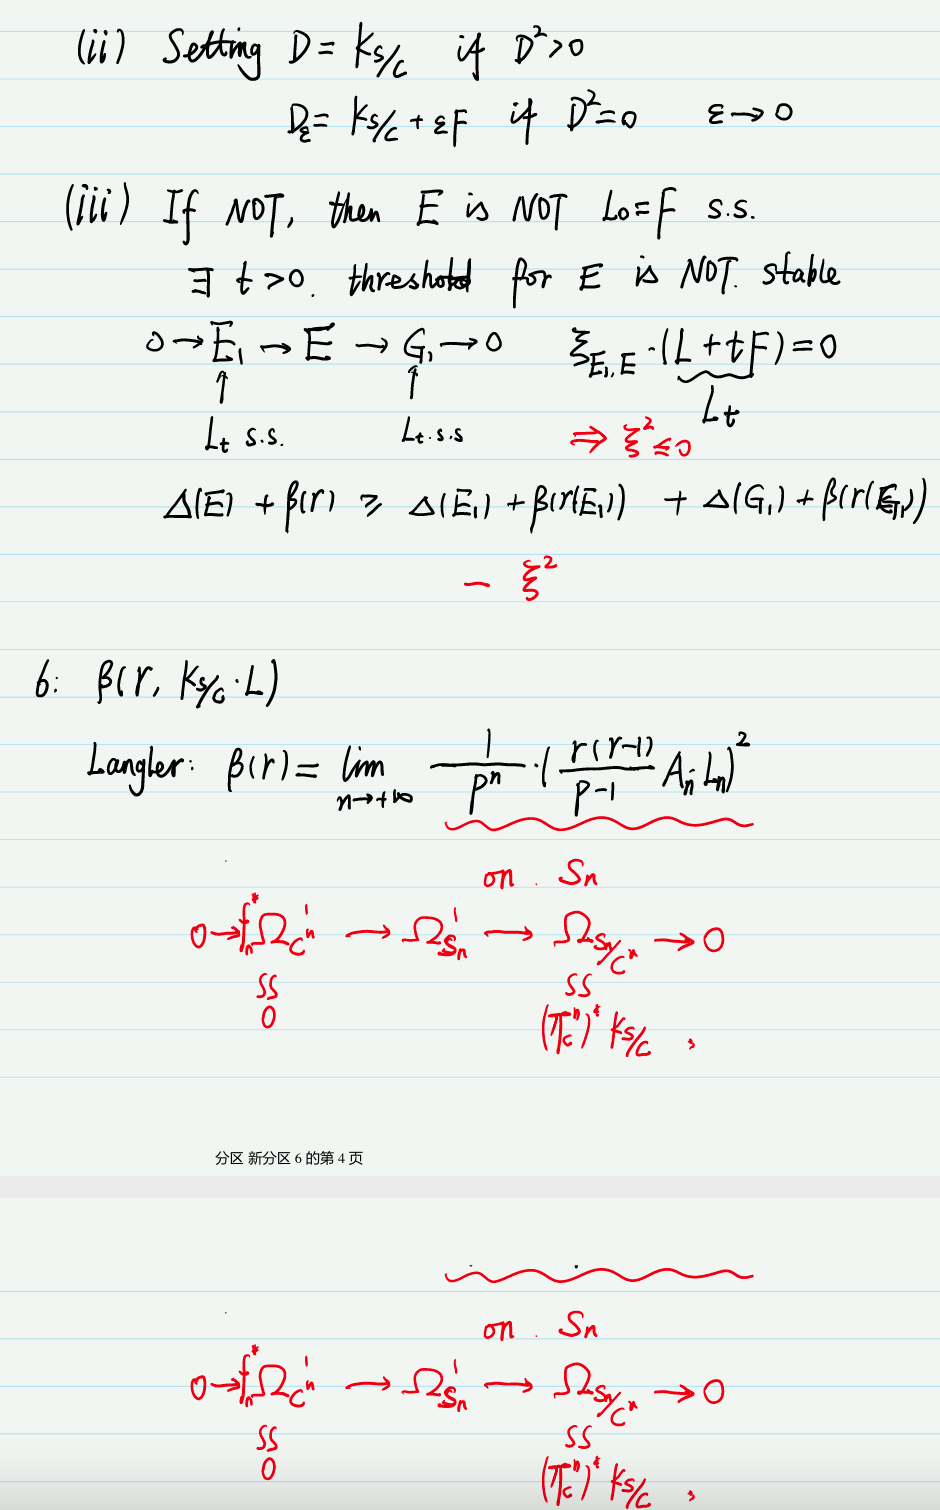 (ii) Setting D = K_{S/C} if D²>0
D_ε = K_{S/C} + εF if D²=0 ε→0
(iii) If NOT, then E is NOT L₀=F s.s.
∃ t>0. threshold for E is NOT. stable
0→E₁→E→G₁→0 ξ_{E₁,E}·(L+tF)=0
↑ ↑ L_t
L_t s.s. L_t.s.s ⇒ ξ²≤0
Δ(E) + β(r) ≥ Δ(E₁) + β(r(E₁)) + Δ(G₁) + β(r(G₁))
- ξ²
6: β(r, K_{S/C}·L)
Langler: β(r) = lim_{n→+∞} 1/pⁿ·(r(r-1)/(p-1) A_n L_n)²
on . S_n
0→f_n^*Ω_{C^n}^1 → Ω_{S_n}^1 → Ω_{S_n/C^n} → 0
SS SS
0 (π_C^n)^* K_{S/C} ,
分区 新分区 6 的第 4 页
on . S_n
0→f_n^*Ω_{C^n}^1 → Ω_{S_n}^1 → Ω_{S_n/C^n} → 0
SS SS
0 (π_C^n)^* K_{S/C} ,